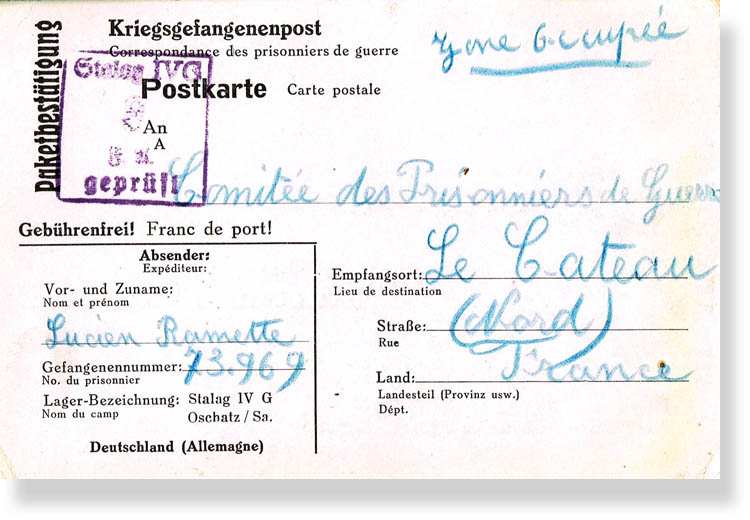 Paketbestätigung
Kriegsgefangenenpost
Correspondance des prisonniers de guerre
Zone Occupée
Stalag IVG
Postkarte Carte postale
An
A
geprüft
Comitée des Prisonniers de Guerre
Gebührenfrei! Franc de port!
Absender:
Expéditeur:
Vor- und Zuname:
Nom et prénom
Lucien Ramette
Gefangenennummer: 73.969
No. du prisonnier
Lager-Bezeichnung: Stalag IV G
Nom du camp Oschatz / Sa.
Deutschland (Allemagne)
Empfangsort: Le Cateau
Lieu de destination
Straße: (Nord)
Rue
Land: France
Landesteil (Provinz usw.)
Dépt.